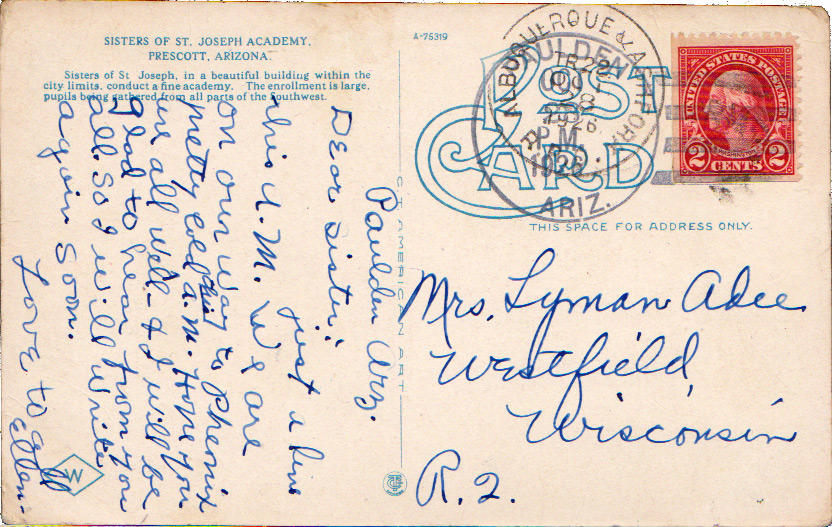 SISTERS OF ST. JOSEPH ACADEMY,
PRESCOTT, ARIZONA.
Sisters of St. Joseph, in a beautiful building within the
city limits, conduct a fine academy. The enrollment is large,
pupils being gathered from all parts of the Southwest.
A-75319
POST
CARD
THIS SPACE FOR ADDRESS ONLY.
C.T. AMERICAN ART
UNITED STATES POSTAGE
WASHINGTON
2 CENTS 2
PAULDEN
OCT
28
P.M.
1926
ARIZ.
ALBUQUERQUE & ASHFORK
TR 22
OCT
28
1926
R.P.O.
Paulden Arz.
Dear Sister:
just a line
this A.M. We are
on our way to Pheonix
pretty cold this A.M. Hope you
are all well & I will be
glad to hear from you
all. So I will write
again soon.
Love to all
Ellen-
Mrs. Lyman Adee
Westfield,
Wisconsin
R.2.
W